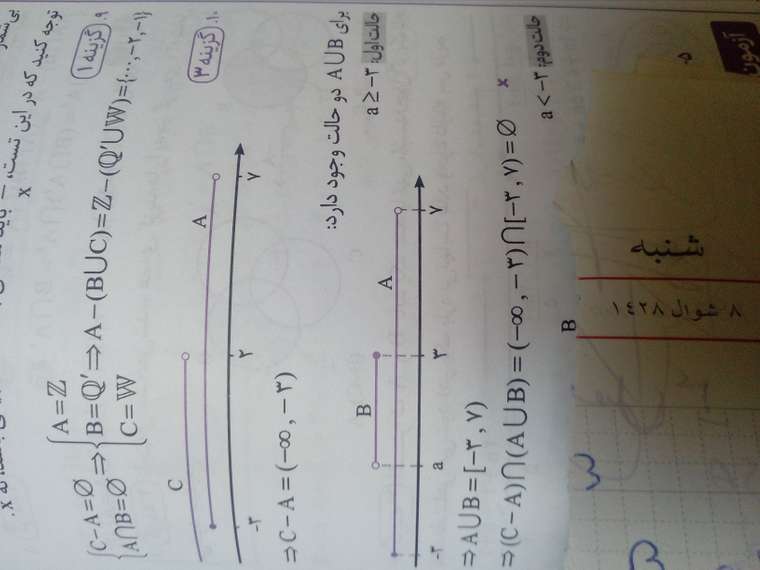 آزمون
۵-
توجه کنید که در این تست،
x
۹. گزینه ۱
{C−A=∅ A∩B=∅ ⇒ {A=ℤ B=ℚ′ C=W ⇒ A−(B∪C)=ℤ−(ℚ′∪W)={…,−۲,−۱}
۱۰. گزینه ۳
C
A
−۳ ۳ ۷
⇒C−A=(−∞,−۳)
برای A∪B دو حالت وجود دارد:
حالت اول: a≥−۳
B A
−۳ a ۳ ۷
⇒A∪B=[−۳,۷)
⇒(C−A)∩(A∪B)=(−∞,−۳)∩[−۳,۷)=∅ x
حالت دوم: a<−۳
B
شنبه
۸ شوال ۱٤۲۸